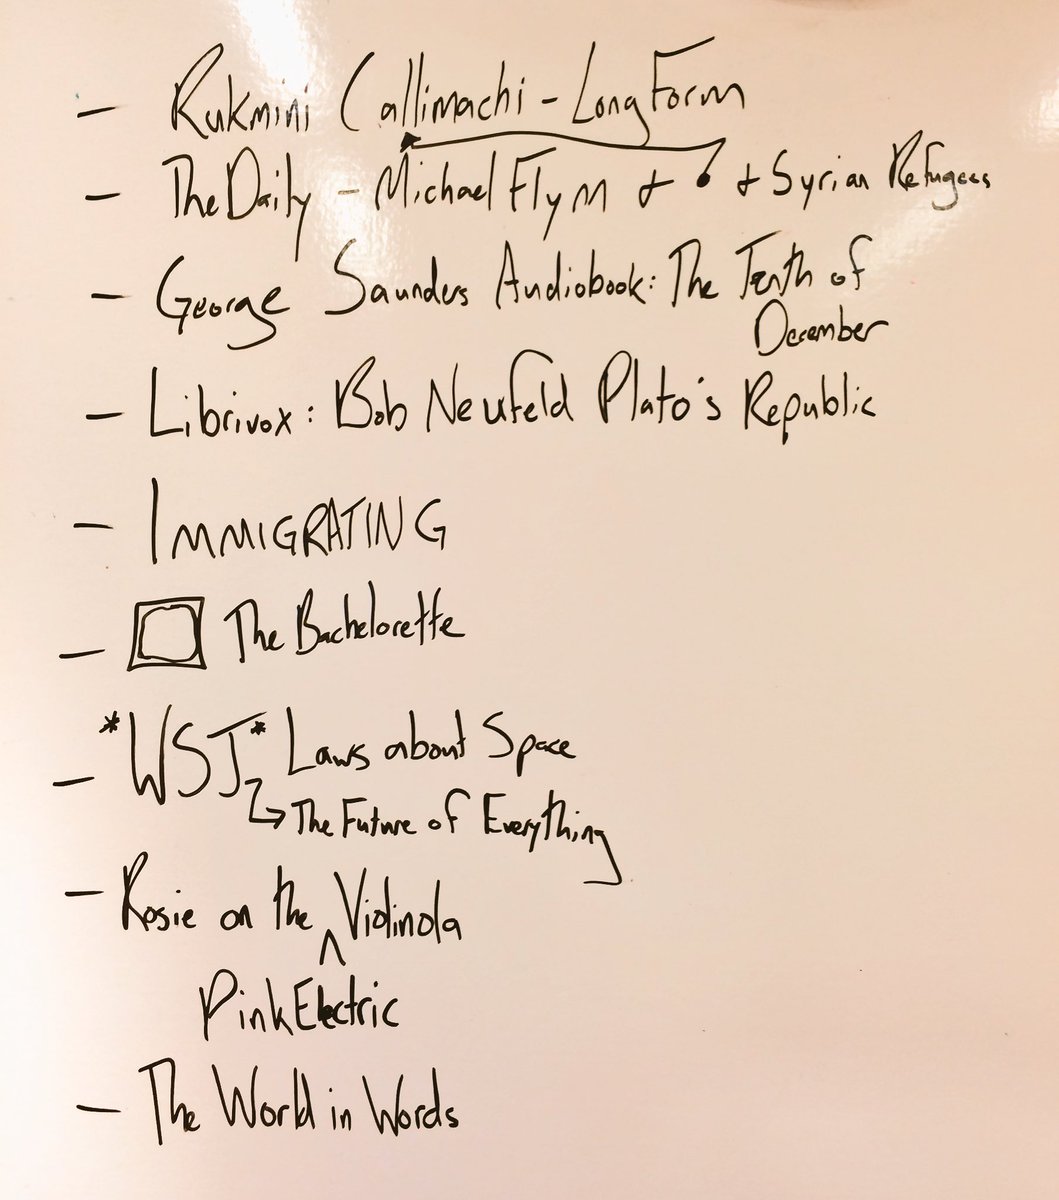 - Rukmini Callimachi - Longform
- The Daily - Michael Flynn + + Syrian Refugees
- George Saunders Audiobook: The Tenth of
December
- Librivox: Bob Neufeld Plato's Republic
- IMMIGRATING
- The Bachelorette
- *WSJ* Laws about Space
The Future of Everything
- Rosie on the ^ Violinola
Pink Electric
- The World in Words